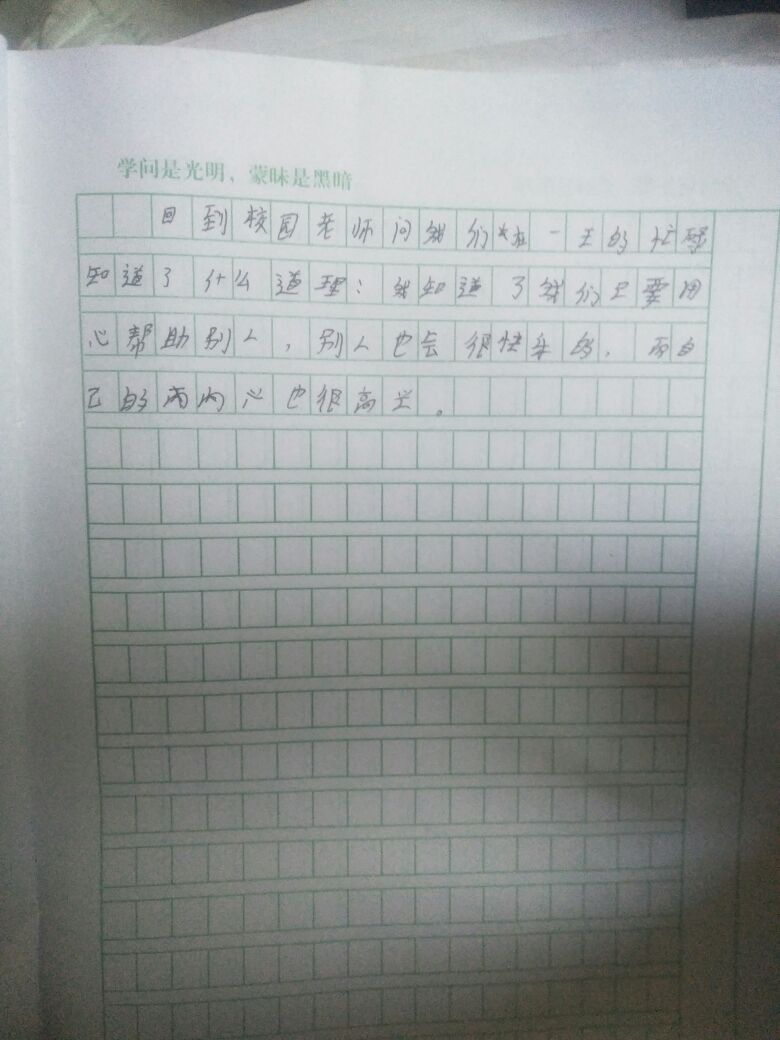 学问是光明，蒙昧是黑暗
回到校园老师问我们在一天的忙碌
知道了什么道理：我知道了我们只要用
心帮助别人，别人也会很快乐的，而自
己的内心也很高兴。